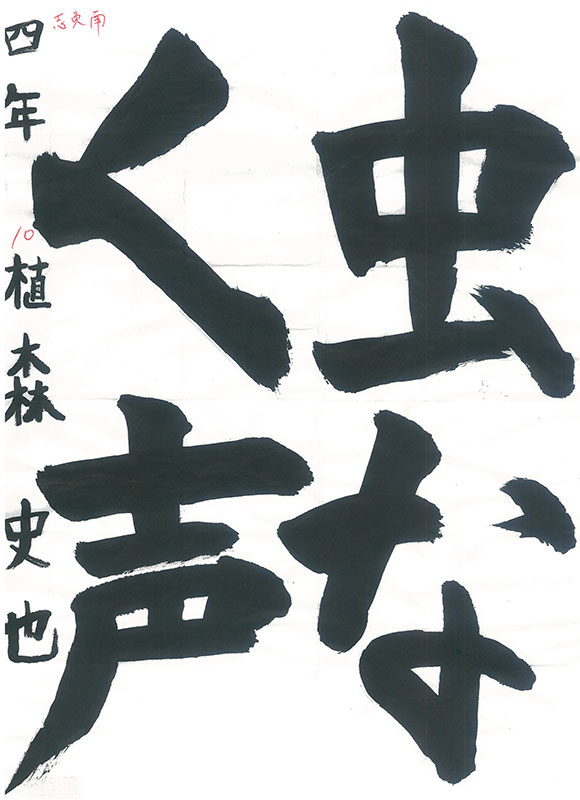 虫な
く声
四年 植森 史也
志東南
10